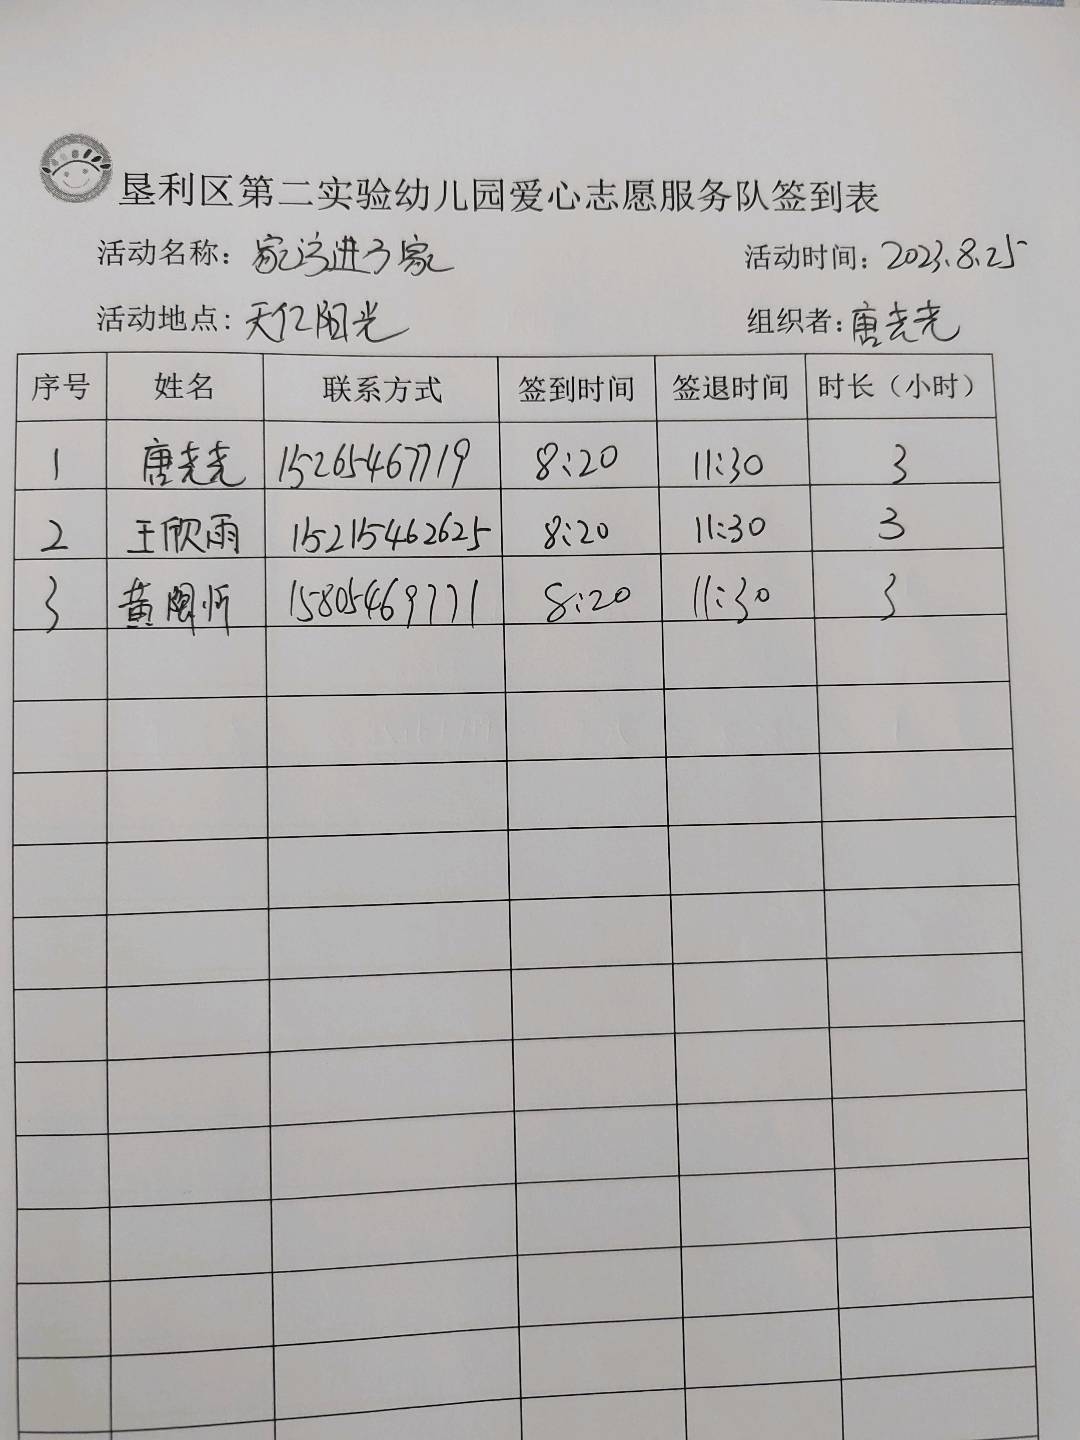 垦利区第二实验幼儿园爱心志愿服务队签到表
活动名称：家访进万家 活动时间：2023.8.25
活动地点：天亿阳光 组织者：唐尧尧
序号 姓名 联系方式 签到时间 签退时间 时长（小时）
1 唐尧尧 15265467719 8:20 11:30 3
2 王欣雨 15215462625 8:20 11:30 3
3 黄 15805469771 8:20 11:30 3